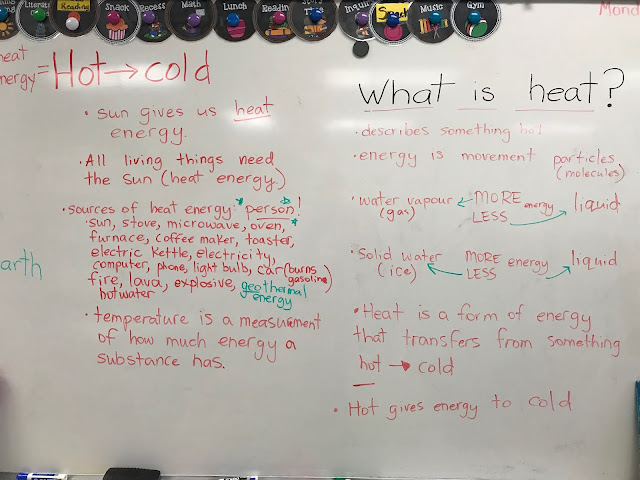 Literat
Reading
Snack
Recess
Math
Lunch
Readin
Inqui
Snack
Music
Gym
Mond
heat
energy = Hot → cold
• sun gives us heat
energy.
• All living things need
the sun (heat energy)
• sources of heat energy: * person!
sun, stove, microwave, oven,
furnace, coffee maker, toaster,
electric kettle, electricity,
computer, phone, light bulb, car (burns
gasoline)
fire, lava, explosive, geothermal
energy
hot water
arth
• temperature is a measurement
of how much energy a
substance has.
What is heat?
• describes something hot
• energy is movement particles
(molecules)
• water vapour ← MORE energy liquid
(gas) LESS →
• Solid water MORE energy → liquid
(ice) ← LESS
• Heat is a form of energy
that transfers from something
hot → cold
• Hot gives energy to cold